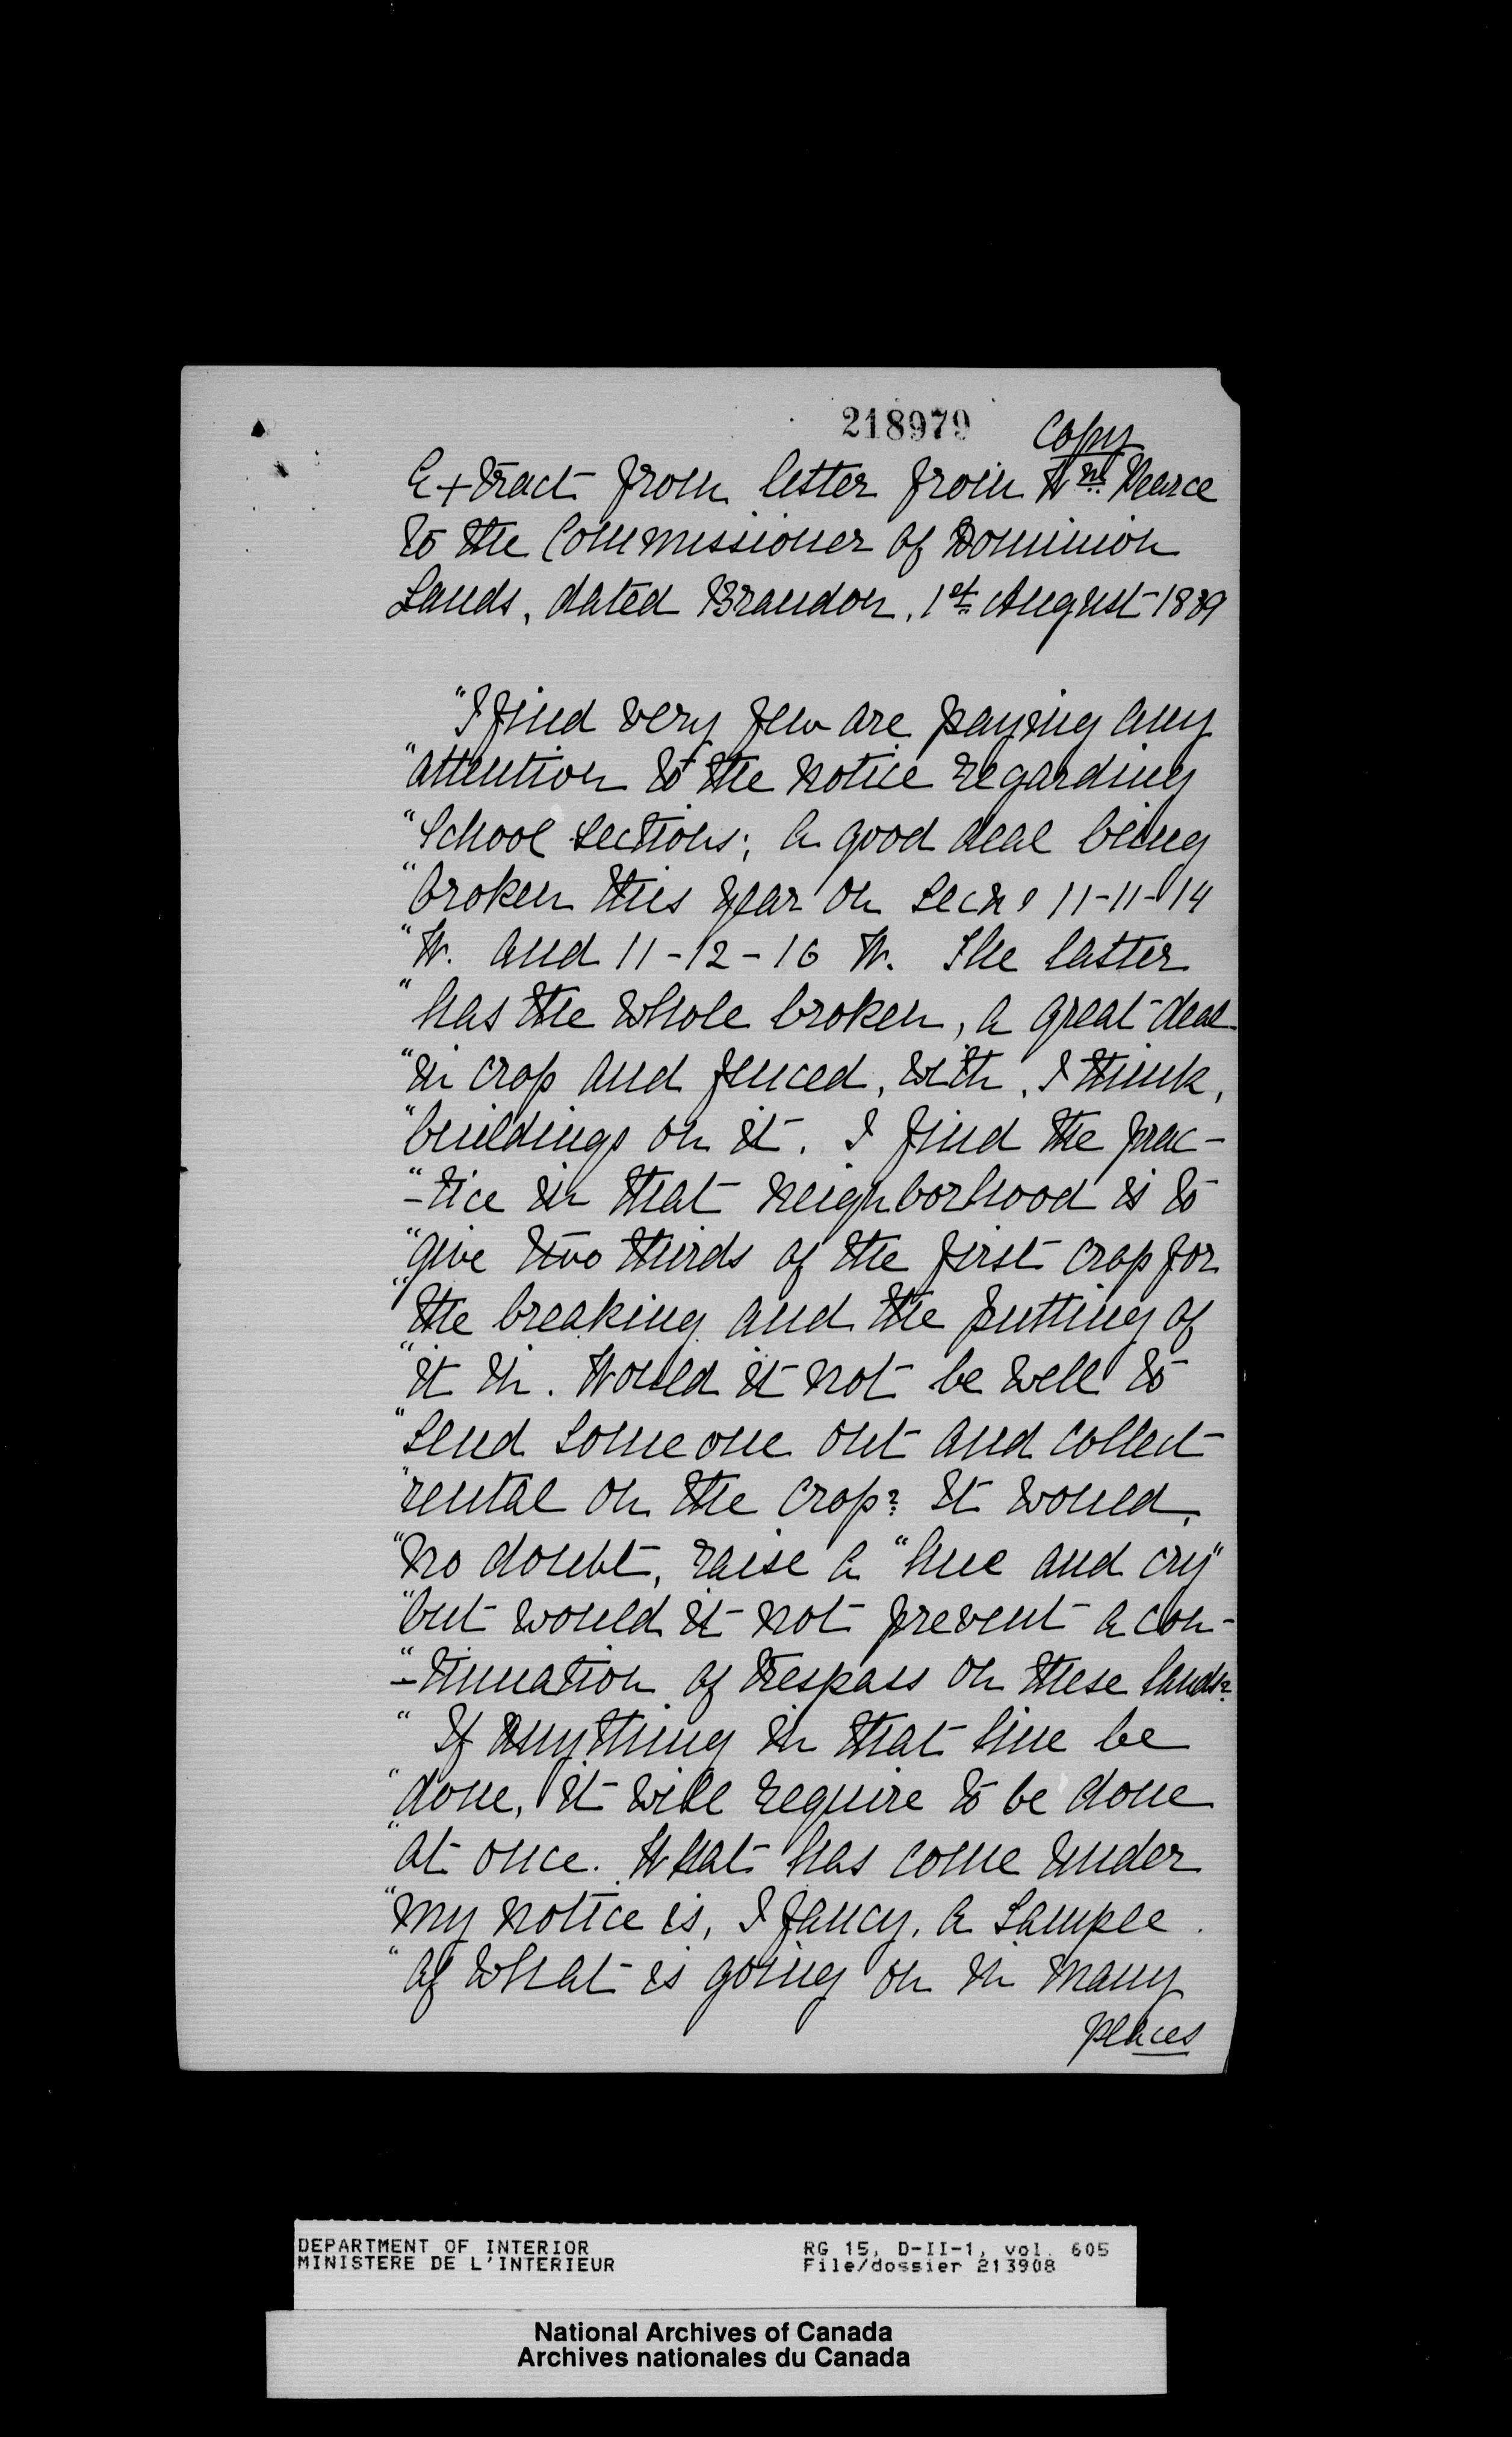 218979
Copy
Extract from letter from Wm. Pearce
to the Commissioner of Dominion
Lands, dated Brandon, 1st August 1889
"I find very few are paying any
"attention to the notice regarding
"School sections; a good deal being
"broken this year on Secns 11-11-14
"W. and 11-12-16 W. The latter
"has the whole broken, a great deal
"in crop and fenced, with, I think,
"buildings on it. I find the prac-
"-tice in that neighborhood is to
"give two thirds of the first crop for
"the breaking and the putting of
"it in. Would it not be well to
"send some one out and collect
"rental on the crop? It would,
"no doubt, raise a "hue and cry"
"but would it not prevent a con-
"-tinuation of trespass on these lands?
" If anything in that line be
"done, it will require to be done
"at once. What has come under
"my notice is, I fancy, a sample
"of what is going on in many
places
DEPARTMENT OF INTERIOR
MINISTERE DE L'INTERIEUR
RG 15, D-II-1, vol. 605
File/dossier 213908
National Archives of Canada
Archives nationales du Canada